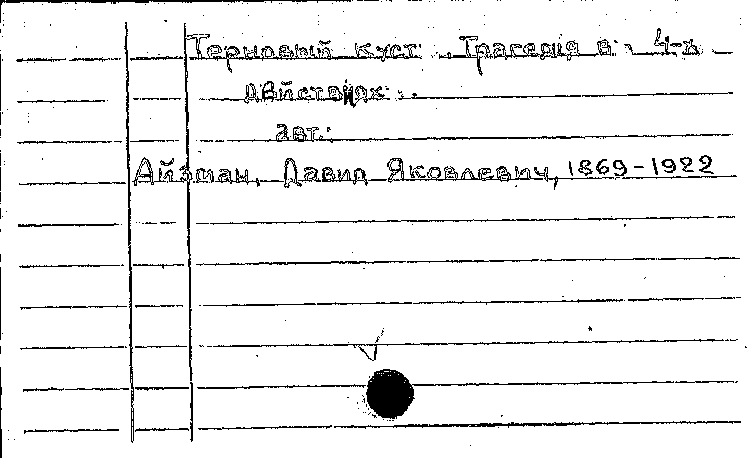 Терновый куст. Трагедія в 4-х
дѣйствіях.
авт.:
Айзман, Давид Яковлевич, 1869-1922